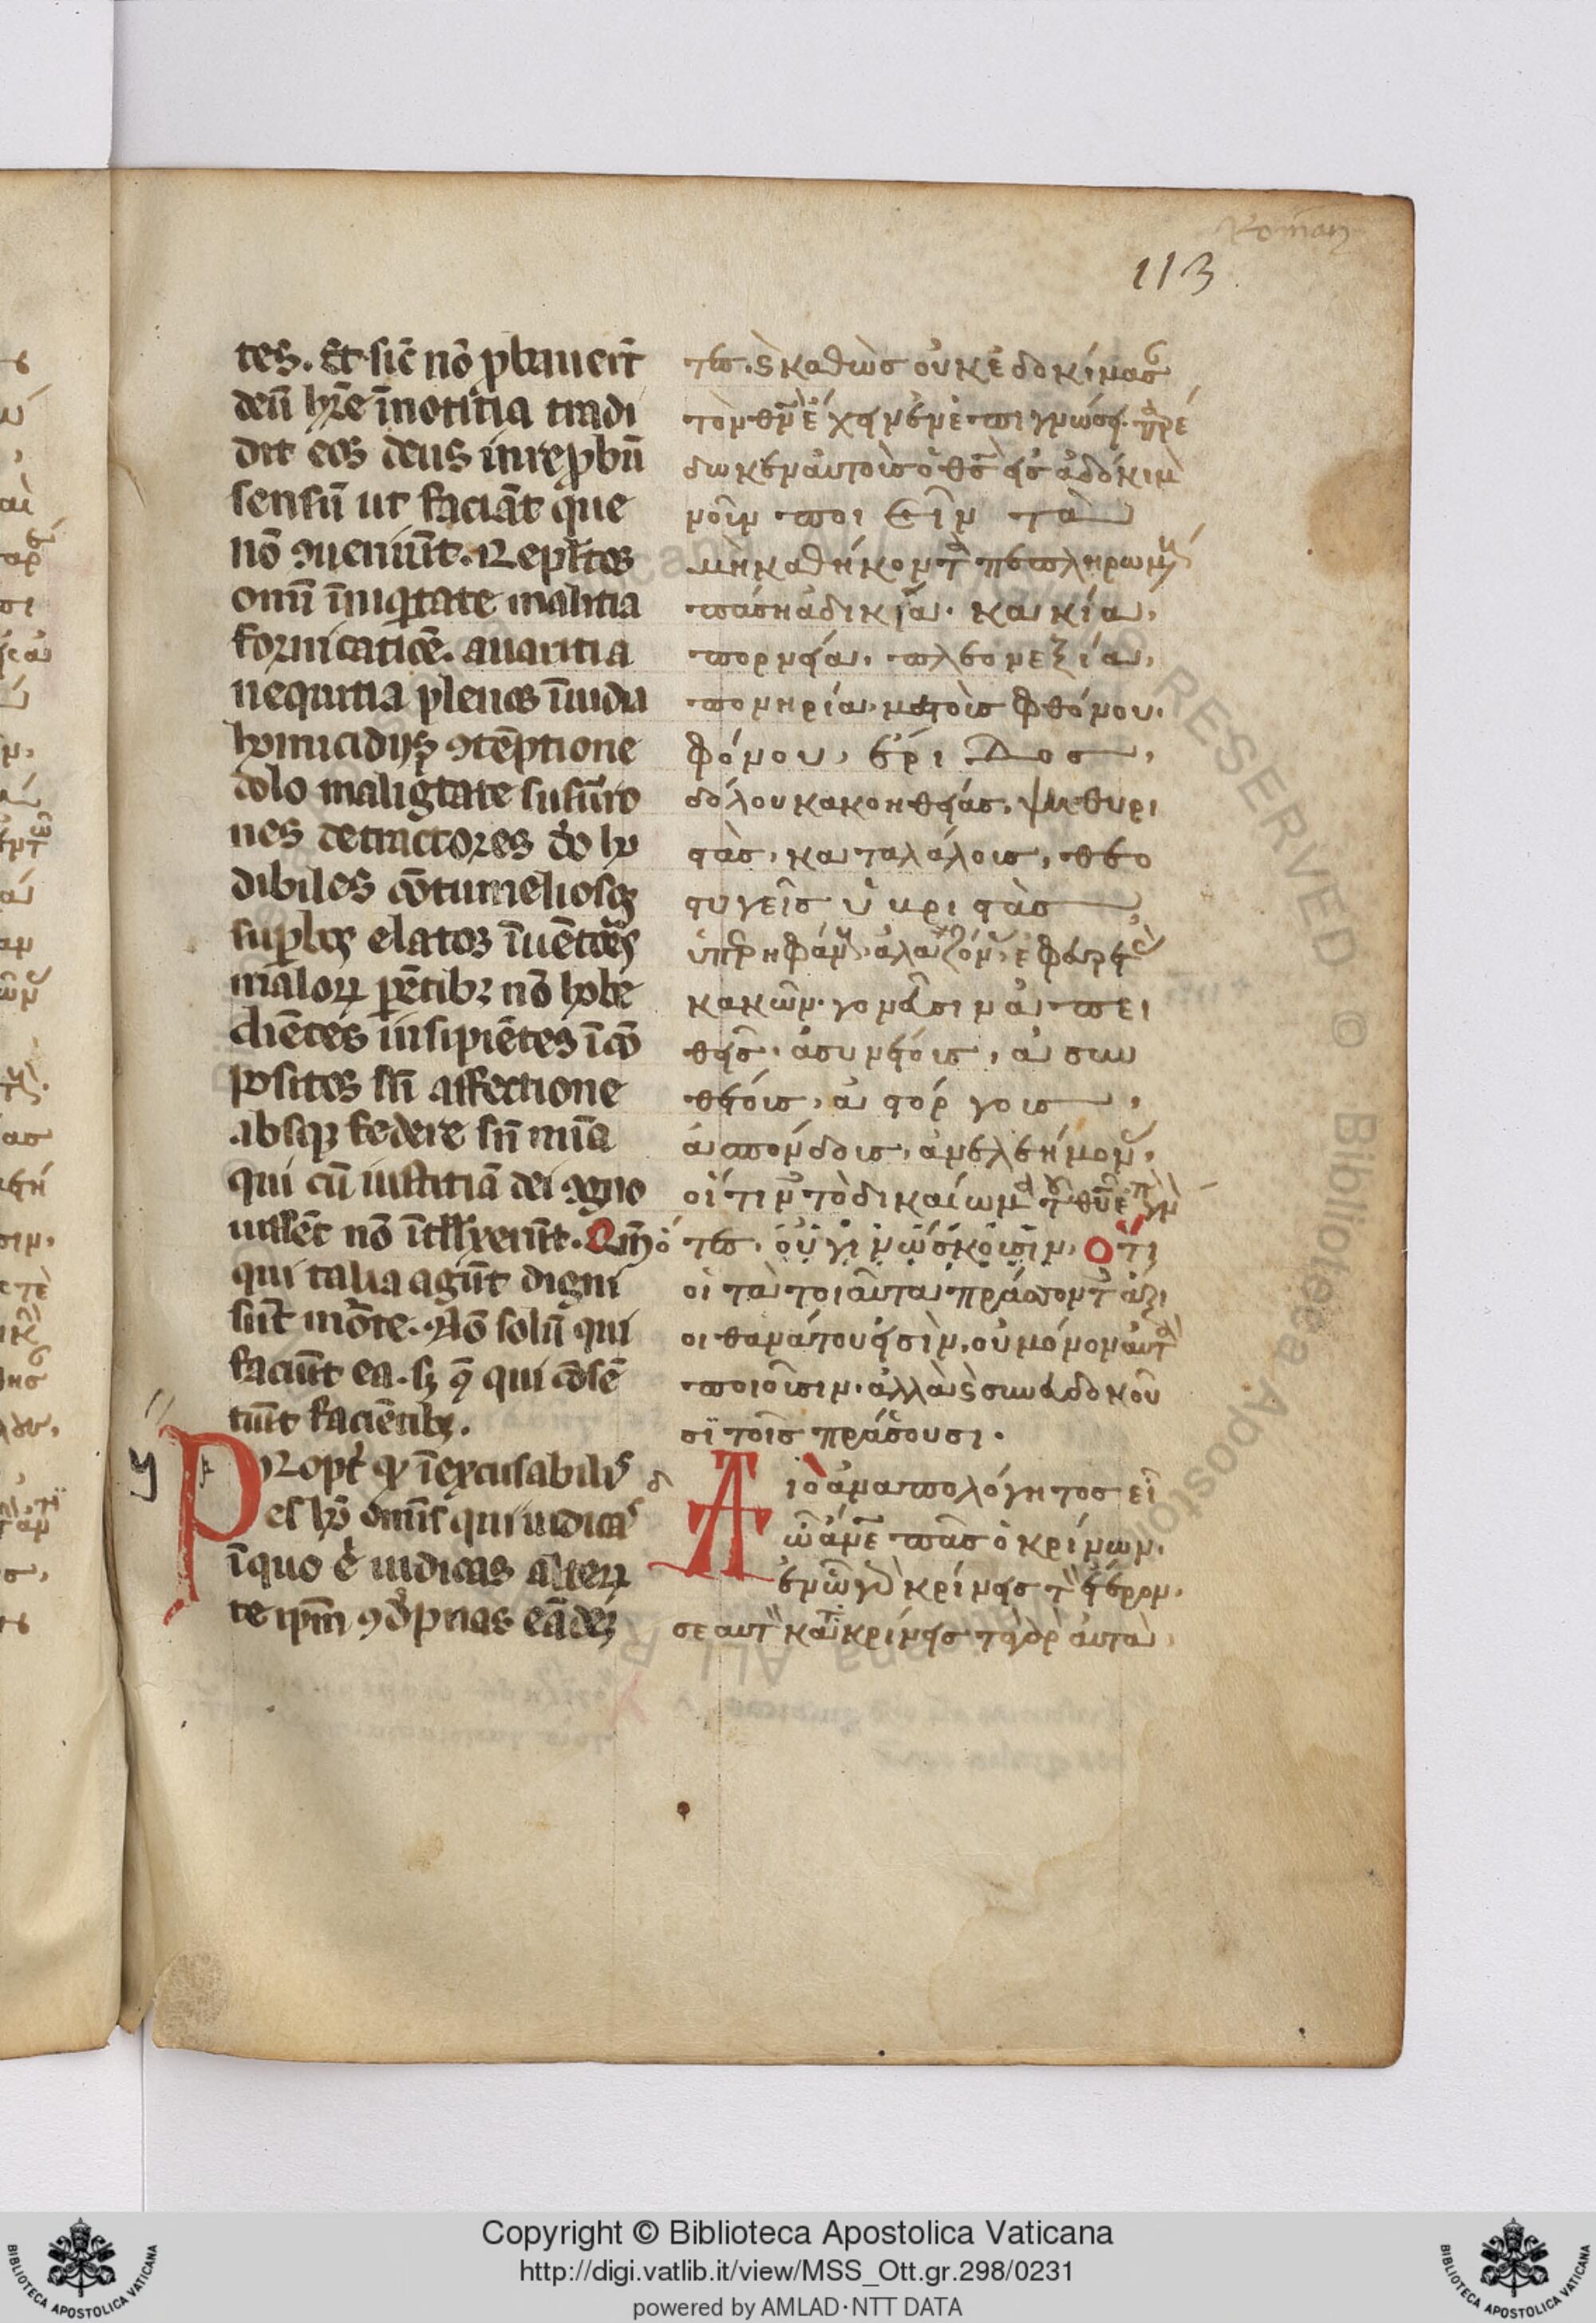 Roman
113
tes. Et sic̄ nō ꝓbauer̄t
deū hr̄e ī notitia tradi
dit eos deus in reꝓbū
sensū ut faciāt que
nō ꝯueniūt. Repl̄tos
omī īniq̄tate malitia
fornicatiōe. auaritia
nequitia plenos īuidia
homicidijs ꝯtēptione
dolo maliḡtate susurro
nes detractores dō ho
dibiles cōtumeliosos
suꝑbos elatos īuētores
malorꝝ parētibꝫ nō hobe
diētes insipiētes īcō
positos sn̄ affectione
absqꝫ federe sn̄ mīa
qui cū iustitiā dei ꝯgno
uissēt nō ītll̄xerūt. Qm̄
qui talia agūt digni
sūt mōrte. Nō solū qui
faciūt ea. sꝫ ⁊ qui cōsē
tiūt faciētibꝫ.
PRopt̄ qđ īexcusabilis
es ho omīs qui iudicas
ī quo .n. iudicas alterꝝ
te ipm̄ ꝯdēpnas eādeꝫ
τες. ϗ καθὼσ οὐκ ἐδοκίμασ
τὸν θν̄ ἔχειν ἐν ἐπιγνώσει. παρέ
δωκεν αὐτοὺσ ὁ θσ̄ εἰσ ἀδόκιμο
νοῦν ποιεῖν τὰ
μὴ καθήκοντα πεπληρωμενουσ
πάση ἀδικία. κακία,
πορνεία, πλεονεξία,
πονηρία. μεστοὺσ φθόνου.
φόνου, ἔριδοσ,
δόλου κακοηθείασ, ψιθυρι
στὰσ, καταλάλουσ, θεο
στυγεῖσ ὑβριστὰσ
ὑπερηφάνουσ, ἀλαζόνασ, ἐφευρετὰσ
κακῶν. γονεῦσιν ἀπει
θεῖσ, ἀσυνέτουσ, ἀσυν
θέτουσ, ἀστόργουσ,
ἀσπόνδουσ, ἀνελεήμονασ,
οἵτινεσ τὸ δικαίωμα τοῦ θῡ ἐπιγνὸ
τεσ, οὐ γινώσκουσιν. Ὅτι
οἱ τὰ τοιαῦτα πράσσοντεσ ἄξι
οι θανάτου εἰσὶν. οὐ μόνον αὐτὰ
ποιοῦσιν. ἀλλὰ ϗ συνευδοκοῦ
σϊ τοῖσ πράσσουσι.
Διὸ ἀναπολόγητοσ εἶ
ὦ ἄνε πᾶσ ὁ κρίνων.
ἐν ὧ γὰρ κρίνεισ τὸν ἕτερον.
σεαυτὸν κατακρίνεισ τὰ γὰρ αὐτὰ
Copyright © Biblioteca Apostolica Vaticana
http://digi.vatlib.it/view/MSS_Ott.gr.298/0231
powered by AMLAD·NTT DATA